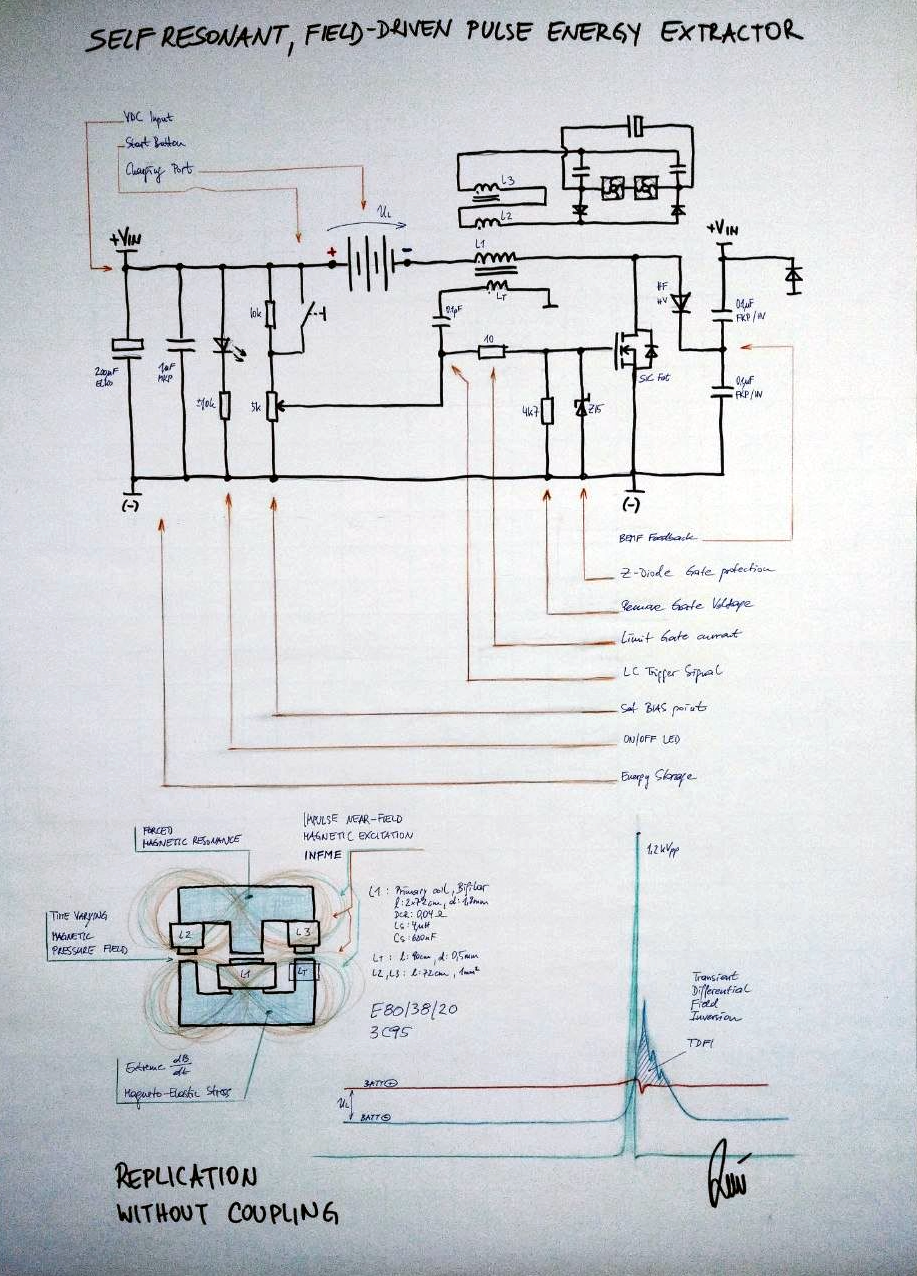 SELF RESONANT, FIELD-DRIVEN PULSE ENERGY EXTRACTOR
VDC Input
Start Button
Charging Port
UL
+
-
L3
L2
L1
LT
+VIN
+VIN
10k
0.1µF
10
HF
HV
0.1µF
FKP/1W
200µF
ELKO
1µF
MKP
5k
4k7
Z15
SiC Fet
0.1µF
FKP/1W
(-)
(-)
BEMF Feedback
Z-Diode Gate protection
Remove Gate Voltage
Limit Gate current
LC Trigger Signal
Set BIAS point
ON/OFF LED
Energy Storage
FORCED
MAGNETIC RESONANCE
IMPULSE NEAR-FIELD
MAGNETIC EXCITATION
INFME
TIME VARYING
MAGNETIC
PRESSURE FIELD
L2
L3
L1
LT
L1: Primary coil, Bifilar
l: 2x72cm, d: 1,8mm
DCR: 0,04Ω
Ls: 4µH
Cs: 620nF
LT: l: 90cm, d: 0,5mm
L2, L3: l: 72cm, 1mm²
E80/38/20
3C95
Extreme dB/dt
Magneto-Elastic Stress
1,2kVpp
Transient
Differential
Field
Inversion
TDFI
BATT +
UL
BATT -
REPLICATION
WITHOUT COUPLING